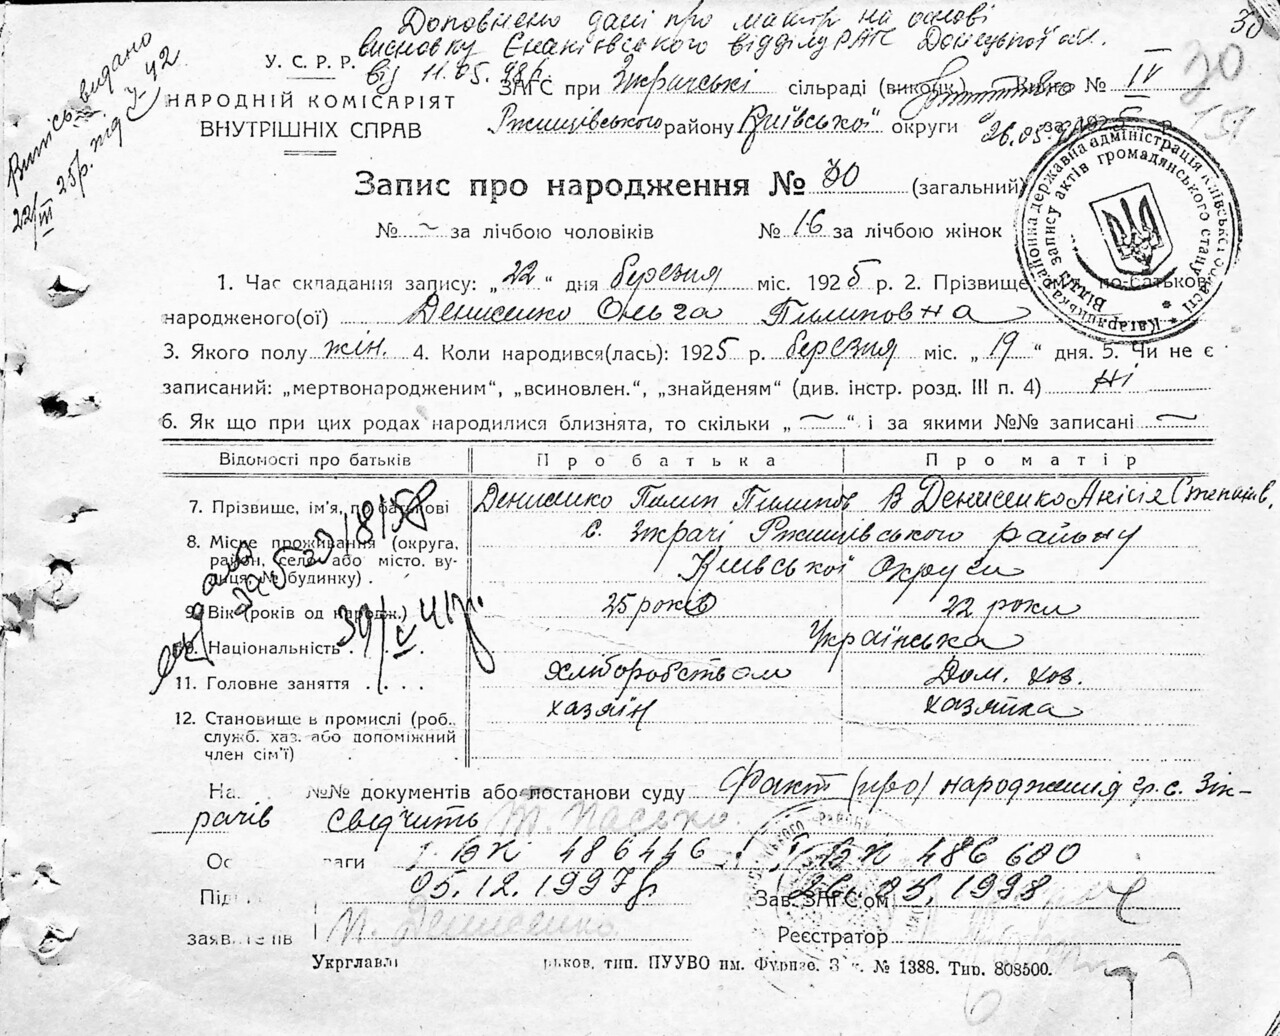 Доповнено дані про матір на основі
висновку Єнакіївського відділу РАГС Донецької обл.
від 11.05.98р.
30
30
Витяг видано
У. С. Р. Р.
НАРОДНІЙ КОМІСАРІЯТ
ВНУТРІШНІХ СПРАВ
ЗАГС при Зікрачські сільраді (виконк.) Книга № IV
Ржищівського району Київської округи за 1925 р.
26.05.
Запис про народження № 30 (загальний)
№ ~ за лічбою чоловіків № 16 за лічбою жінок
1. Час складання запису: „22“ дня березня міс. 1925 р. 2. Прізвище, по-батькові
народженого(ої) Денисенко Ольга Пилиповна
3. Якого полу жін. 4. Коли народився(лась): 1925 р. березня міс. „19“ дня. 5. Чи не є
записаний: „мертвонародженим“, „всиновлен.“, „знайденям“ (див. інстр. розд. III п. 4) Ні
6. Як що при цих родах народилися близнята, то скільки „~“ і за якими №№ записані ~
Відомості про батьків Про батька Про матір
7. Прізвище, ім'я, по батькові Денисенко Пилип Пилипов В Денисенко Анісія Степанів.
8. Місце проживання (округа, с. Зікрачі Ржищівського району
район, село або місто, ву-
лиця, № будинку) Київської Округи
9. Вік (років од народж.) 25 років 22 роки
10. Національність Українська
11. Головне заняття Хліборобством Дом. хоз.
12. Становище в промислі (роб., хазяїн хазяйка
служб. хаз. або допоміжний
член сім'ї)
На №№ документів або постанови суду Факт (про) народження гр. с. Зік-
рачів свідчить Т. Пасько.
ваги І ВК 486446 І ВК 486600
05.12.1997р 26.05.1998
Зав. ЗАГС'ом
заяв П. Денисенко
Реєстратор
Укрглавлі рьков, тип. ПУУВО ім. Фрунзе. З № 1388. Тир. 808500.
державна адміністрація Київської області * Кагарлицька районна
Відділ запису актів громадянського стану *